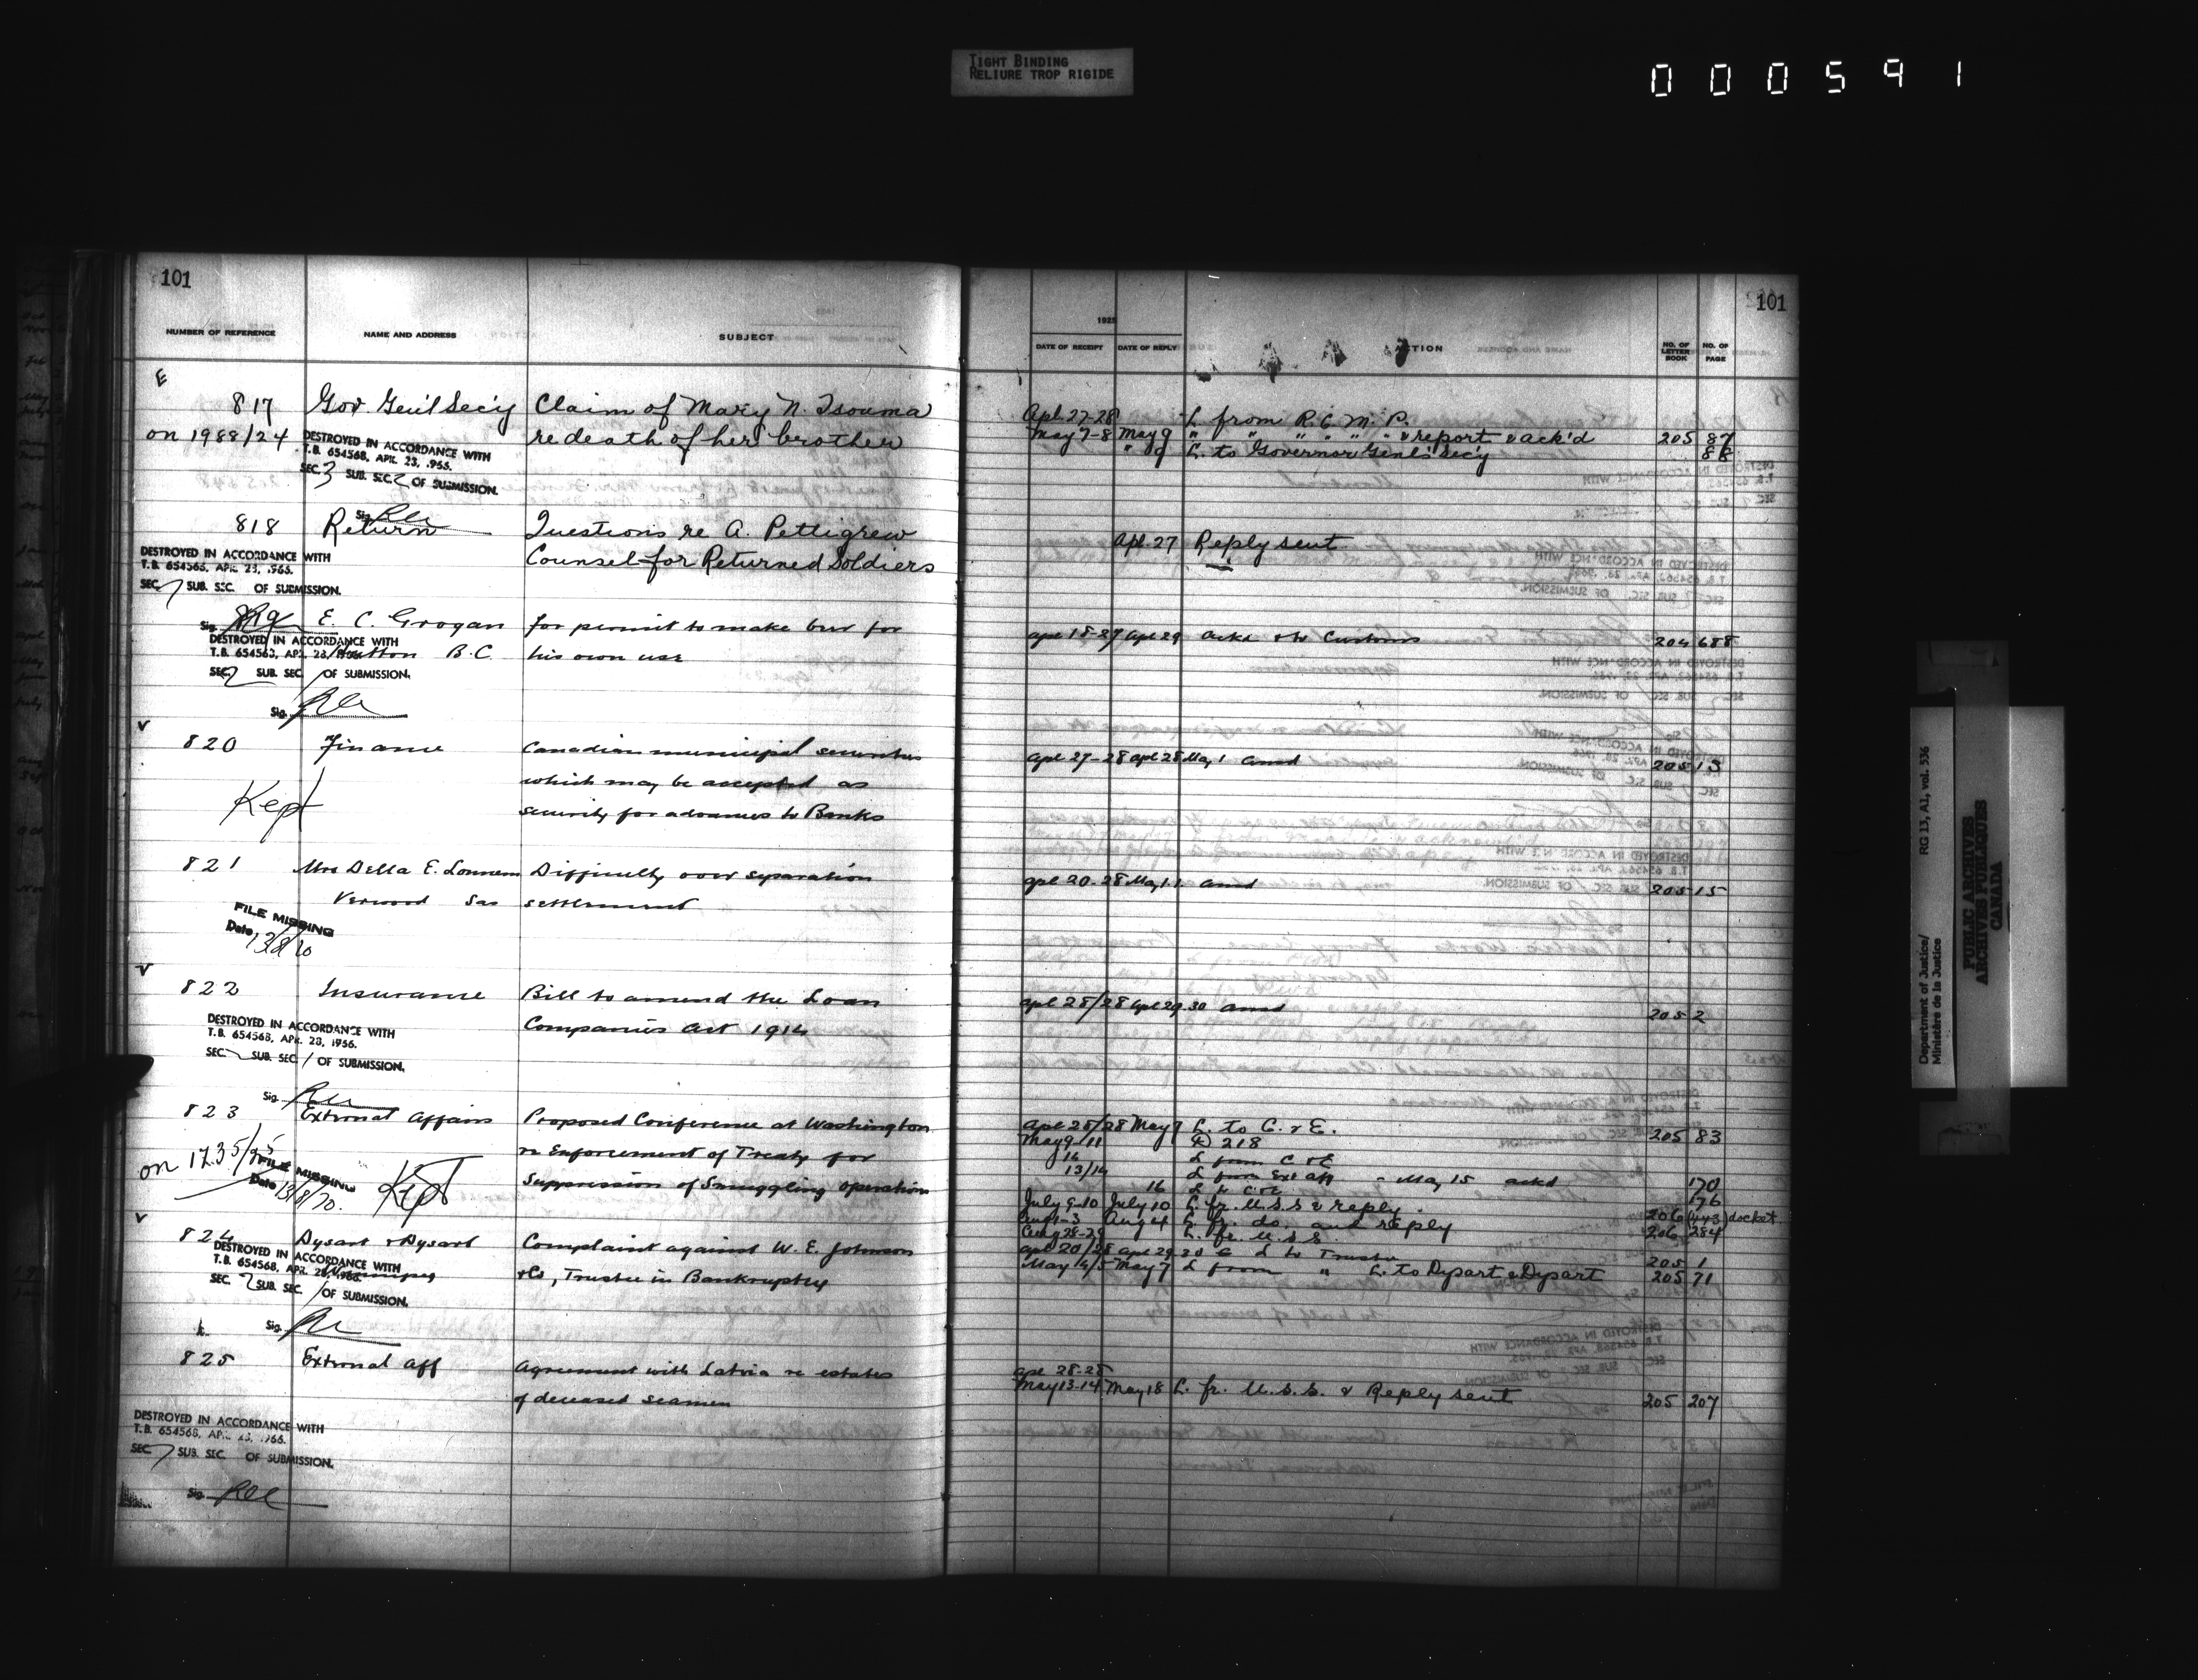 TIGHT BINDING
RELIURE TROP RIGIDE
000591
101
NUMBER OF REFERENCE
NAME AND ADDRESS
SUBJECT
E
817 Gov. Gen'l Sec'y Claim of Mary N. Tsouma
on 1988/24 re death of her brother
DESTROYED IN ACCORDANCE WITH
T.B. 654568, APR. 23, 1966.
SEC. 3 SUB. SEC. 2 OF SUBMISSION.
Sig.
818 Return Questions re A. Pettigrew
Counsel for Returned Soldiers
DESTROYED IN ACCORDANCE WITH
T.B. 654568, APR. 23, 1966.
SEC. 7 SUB. SEC. OF SUBMISSION.
Sig. 819 E. C. Grogan for permit to make beer for
DESTROYED IN ACCORDANCE WITH
T.B. 654568, APR. 23, 1966. B.C. his own use
SEC. 2 SUB. SEC. / OF SUBMISSION.
Sig.
v
820 Finance Canadian municipal securities
which may be accepted as
Kept
security for advances to Banks
821 Mrs Della E. Difficulty over separation
Verwood Sas settlement
FILE MISSING
Date 13/8/70
v
822 Insurance Bill to amend the Loan
Companies Act 1914
DESTROYED IN ACCORDANCE WITH
T.B. 654568, APR. 23, 1966.
SEC. 2 SUB. SEC. / OF SUBMISSION.
Sig.
823 External Affairs Proposed Conference at Washington
on 1235/25 re Enforcement of Treaty for
FILE MISSING
Date 13/8/70.
Kept
Suppression of Smuggling operation
v
824 Dysart & Dysart Complaint against W. E. Johnson
DESTROYED IN ACCORDANCE WITH
T.B. 654568, APR. 23, 1966. Winnipeg & Co, Trustee in Bankruptcy
SEC. 2 SUB. SEC. / OF SUBMISSION.
Sig.
825 External Aff Agreement with Latvia re estates
of deceased seamen
DESTROYED IN ACCORDANCE WITH
T.B. 654568, APR. 23, 1966.
SEC. 7 SUB. SEC. OF SUBMISSION.
Sig.
101
1925
DATE OF RECEIPT
DATE OF REPLY
ACTION
NO. OF LETTER BOOK
NO. OF PAGE
Apl. 27-28 L from R.C.M.P.
May 7-8 May 9 " " " " " " & report & ack'd 205 87
" 9 L. to Governor Genl's Sec'y 88
Apl. 27 Reply sent
Apl 18-27 Apl 29 ackd & to Customs 204 688
Apl 27-28 Apl 28 May 1 ansd 205 13
Apl 20-28 May 1 ansd 205 15
Apl 28/28 Apl 29 30 ansd 205 2
Apl 28/28 May 9 L. to C. & E. 205 83
May 9/11 218
16 L from C & E
13/14 L from Ext aff - May 15 ackd 170
16 L to C & E 176
July 9-10 July 10 L. fr. U.S.S & reply. 206 (443) docket
Aug 1-3 Aug 4 L. fr. do. and reply 206 284
Aug 28-29 L. fr. U.S.S.
Apl 20/28 Apl 29 30 L to Trustee 205 1
May 4/5 May 7 L from " L. to Dysart & Dysart 205 71
Apl 28-28
May 13-14 May 18 L. fr. U.S.S. & Reply sent 205 207
Department of Justice/ RG 13, A1, vol. 536
Ministère de la Justice
PUBLIC ARCHIVES
ARCHIVES PUBLIQUES
CANADA